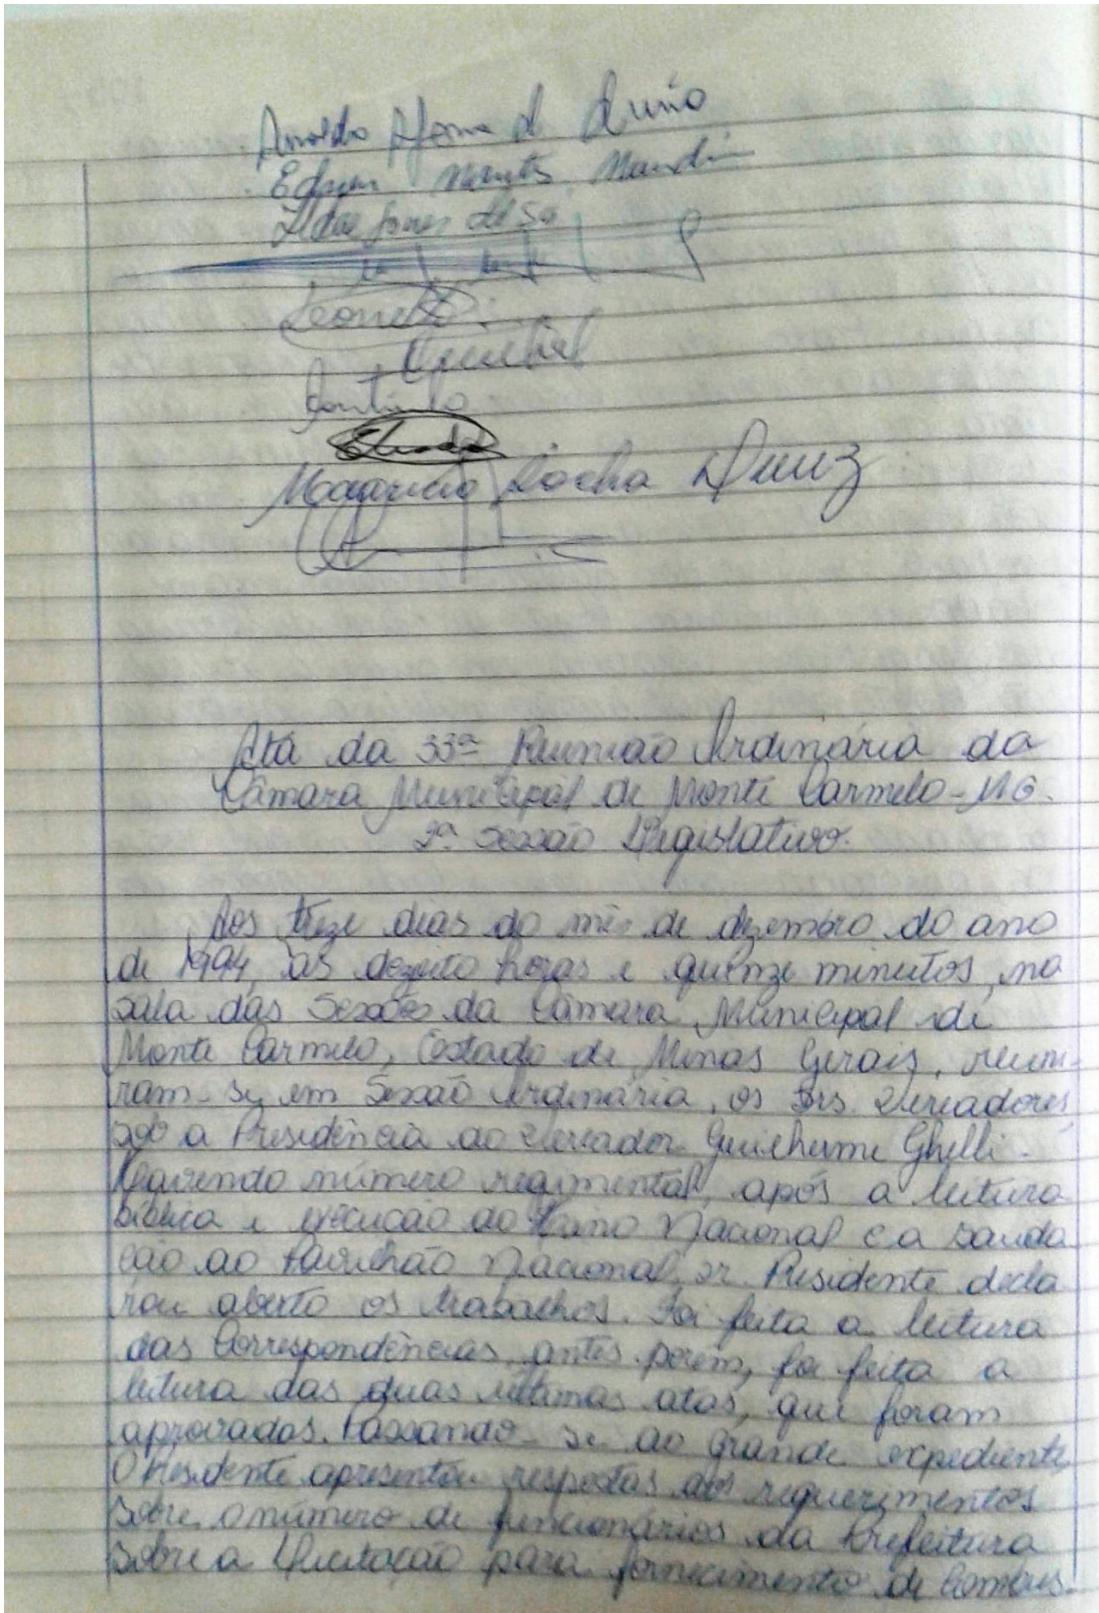 Arnaldo
Edson
Gomes de Sá
Leonel
Rocha
Ata da 33ª Reunião Ordinária da
Câmara Municipal de Monte Carmelo-MG.
2ª Sessão Legislativa.
Aos treze dias do mês de dezembro do ano
de 1994, às dezoito horas e quinze minutos, na
sala das Sessões da Câmara Municipal de
Monte Carmelo, Estado de Minas Gerais, reuni-
ram-se em Sessão Ordinária, os Srs. Vereadores,
sob a Presidência do Vereador Guilherme Ghelli.
Havendo número regimental, após a leitura
bíblica e execução do Hino Nacional e a sauda
ção ao Pavilhão Nacional, sr. Presidente decla
rou aberto os trabalhos. Foi feita a leitura
das Correspondências, antes porém, foi feita a
leitura das duas últimas atas, que foram
aprovadas. Passando-se ao grande expediente,
O Presidente apresentou respostas dos requerimentos
sobre o número de funcionários da Prefeitura
sobre a Licitação para fornecimento de Combus-